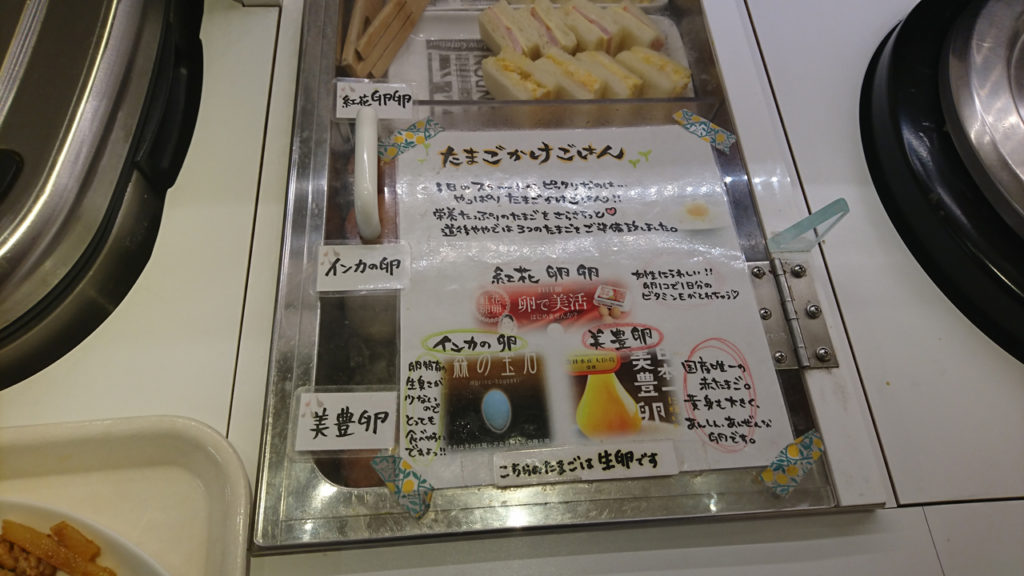 紅花卵卵
たまごかけごはん
今日のスタートにピッタリなのは…
やっぱり たまごかけごはん!!
栄養たっぷりのたまごをさらさらっと♡
道後ややでは3つのたまごをご準備致しました。
インカの卵
紅花 卵卵
女性にうれしい!!
卵1コで1日分の
ビタミンEがとれちゃう♡
紅花卵卵
卵で美活
はじめませんか?
インカの卵
卵特有の
生臭さが
少ないの
とても
食べやすい
ですよ!!
森の宝石
美豊卵
美豊卵
国産唯一の
赤たまご。
黄身も大きく、
あんしん、あんぜんな
卵です。
美豊卵
こちらのたまごは 生卵です